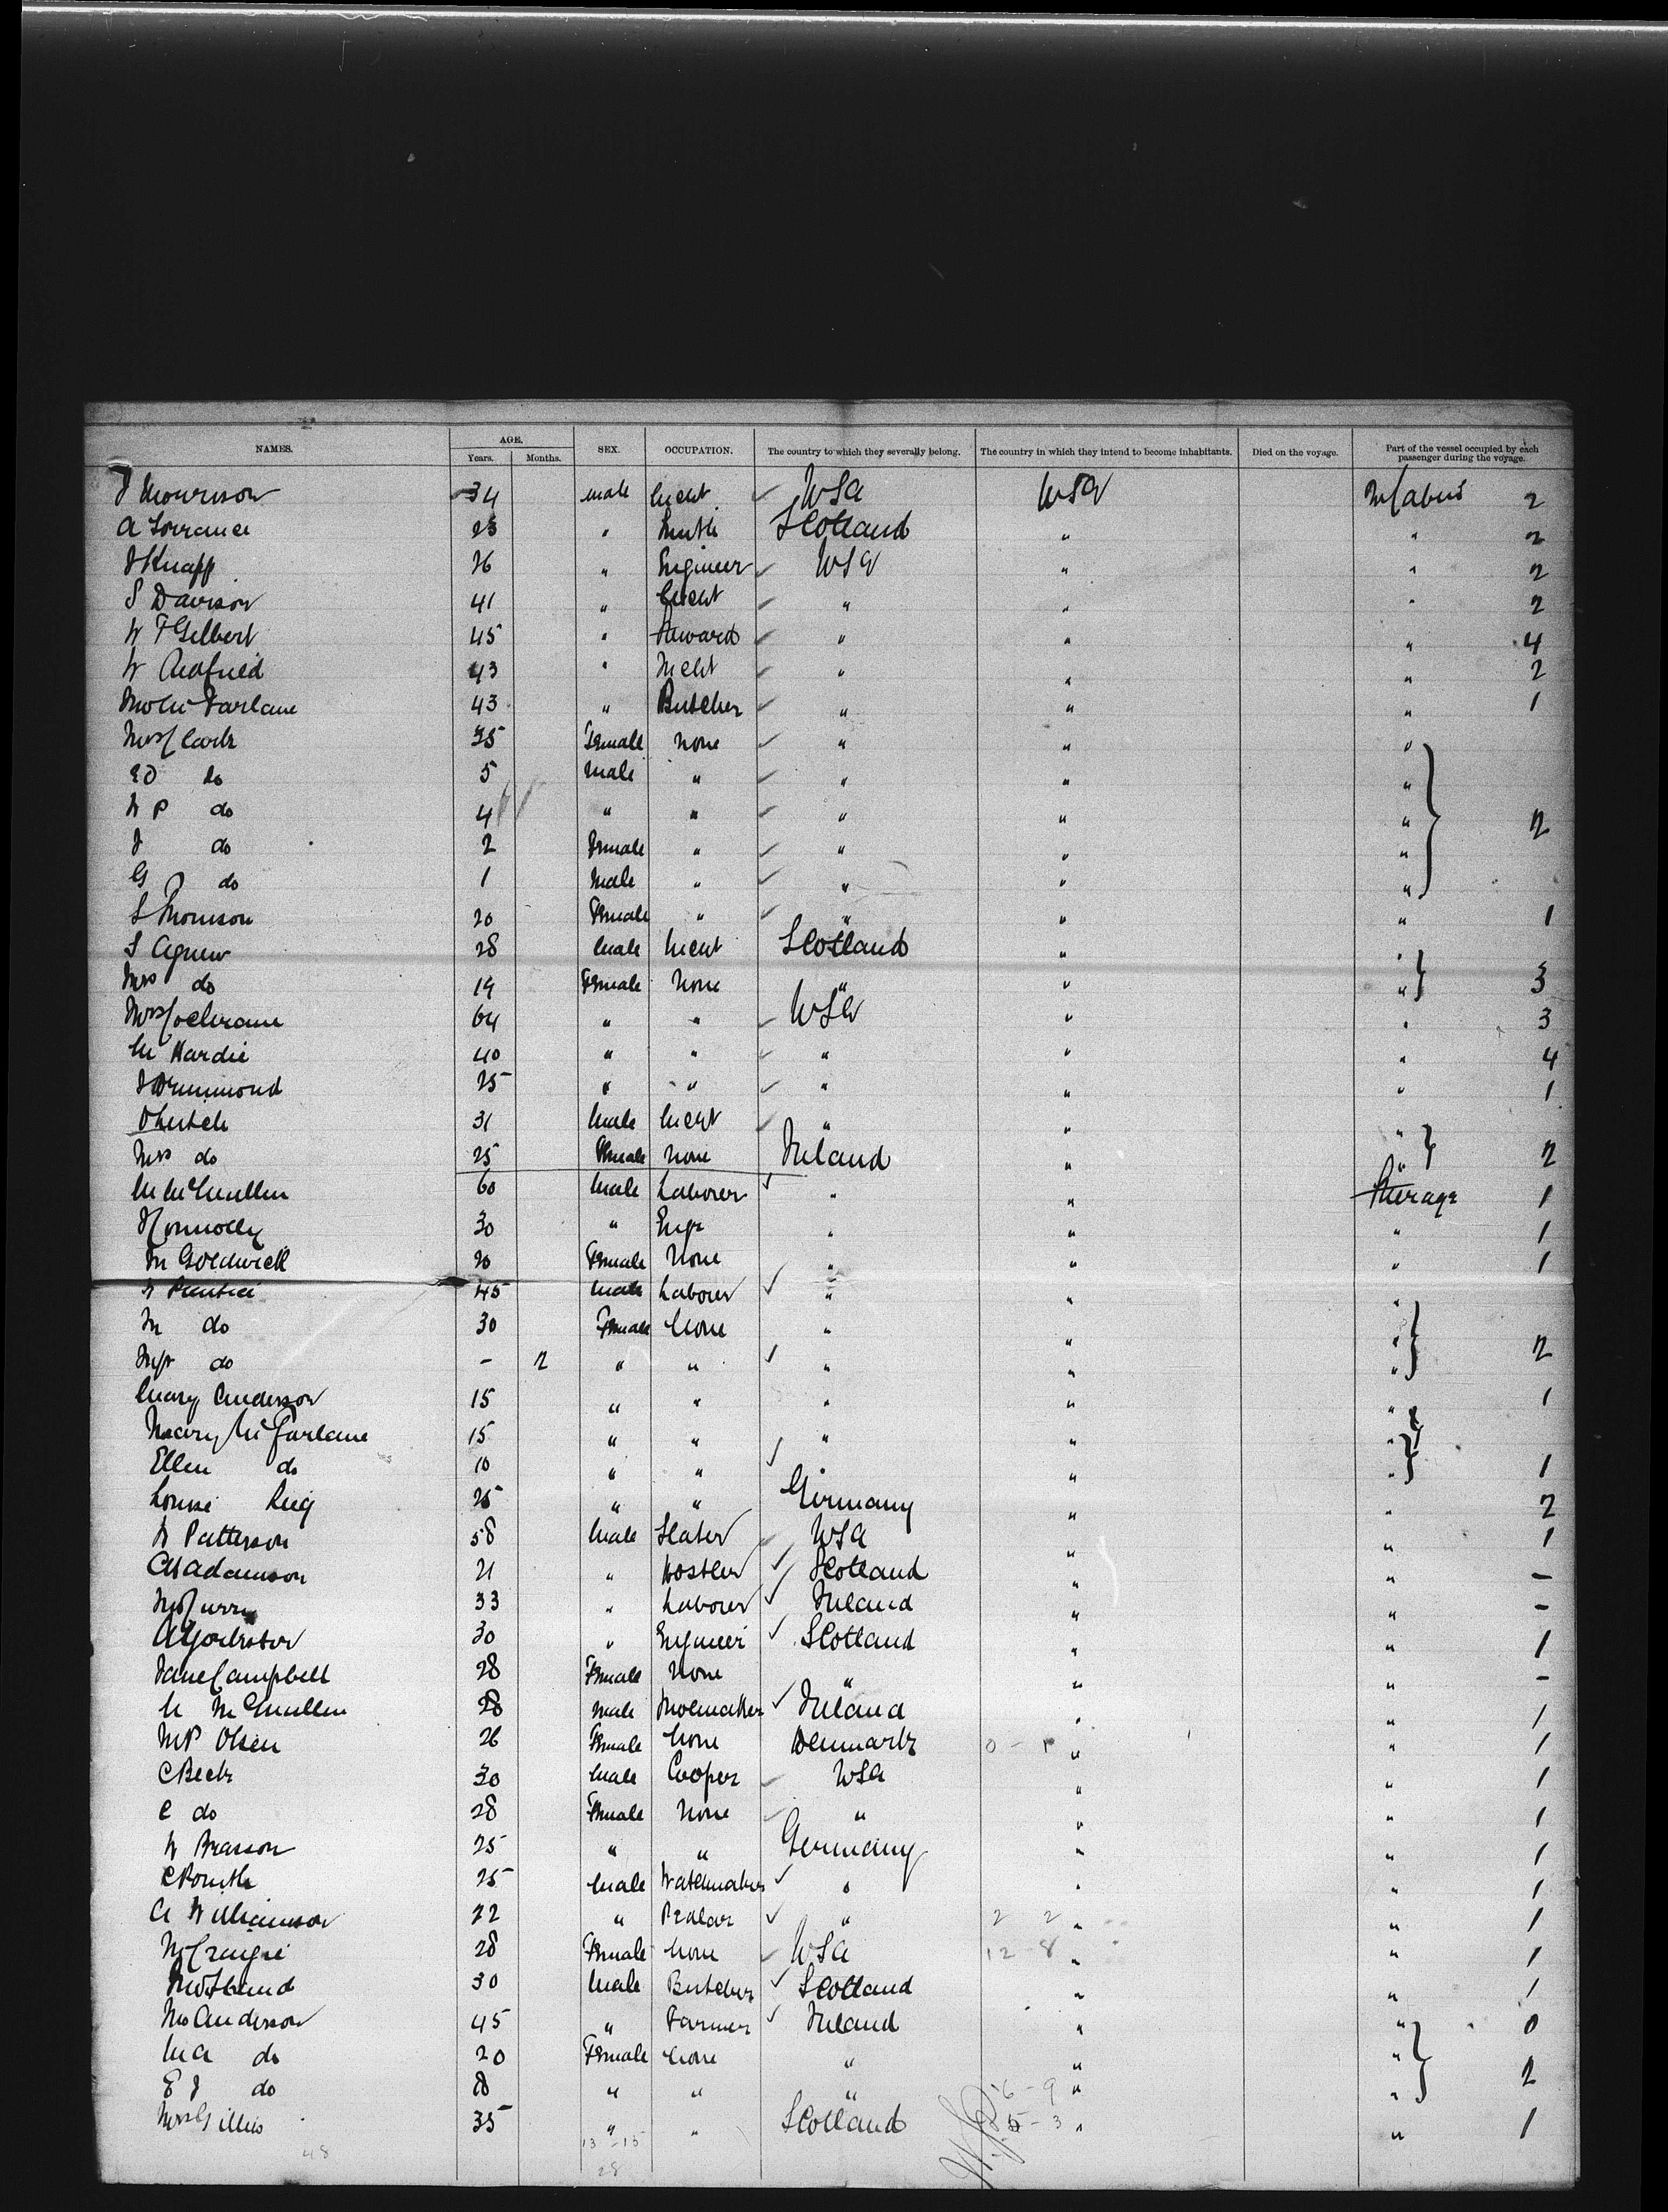 NAMES. AGE. Years. Months. SEX. OCCUPATION. The country to which they severally belong. The country in which they intend to become inhabitants. Died on the voyage. Part of the vessel occupied by each passenger during the voyage.
J Mourison 34 male Mcht USA USA 2
A Torrance 25 " Scotland " " 2
J Knapp 26 " Engineer USA " " 2
S Davison 41 " Mcht " " " 2
W F Gilbert 45 " Steward " " " 4
W 43 " Mcht " " " 2
McFarlane 43 " Butcher " " " 1
Mrs Clark 35 Female None " " "
E D do 5 Male " " " "
W P do 4 " " " " " 2
J do 2 Female " " " "
G do 1 Male " " " "
S Morrison 20 Female " " " " 1
S Agnew 28 Male Mcht Scotland " "
Mrs do 19 Female None " " " 3
Mrs Cochrane 64 " " USA " " 3
M Hardie 40 " " " " " 4
J Drummond 25 " " " " " 1
31 Male Mcht " " "
Mrs do 25 Female None Ireland " " 2
M McMullen 60 Male Laborer " " Steerage 1
J Connolly 30 " Engr " " " 1
M Goldwick 20 Female None " " " 1
45 Male Labourer " " "
M do 30 Female None " " " 2
do - 2 " " " " "
Mary Anderson 15 " " " " " 1
Mary McFarlane 15 " " " " "
Ellen do 10 " " " " " 1
Louise 25 " " Germany " " 2
W Patterson 58 Male Slater USA " " 1
Adamson 21 " Hostler Scotland " " -
M Curry 33 " Laborer Ireland " " -
30 " Engineer Scotland " " 1
Jane Campbell 28 Female None " " " -
McMullen 28 Male Shoemaker Ireland " " 1
M P Olsen 26 Female None Denmark 0 - 1 " " 1
C Beck 30 Male Cooper USA " " 1
C do 28 Female None " " " 1
25 " " Germany " " 1
25 Male Watchmaker " " " 1
A Williamson 22 " Pedlar " 2 2 " " 1
M Craigie 28 Female None USA 12 - 8 " " 1
30 Male Butcher Scotland " " 1
Anderson 45 " Farmer Ireland " " 0
M A do 20 Female None " " "
E J do 8 " " " 16 - 9 " " 2
Mrs Gillies 35 " " Scotland 5 - 3 " " 1
48 13 - 15
28